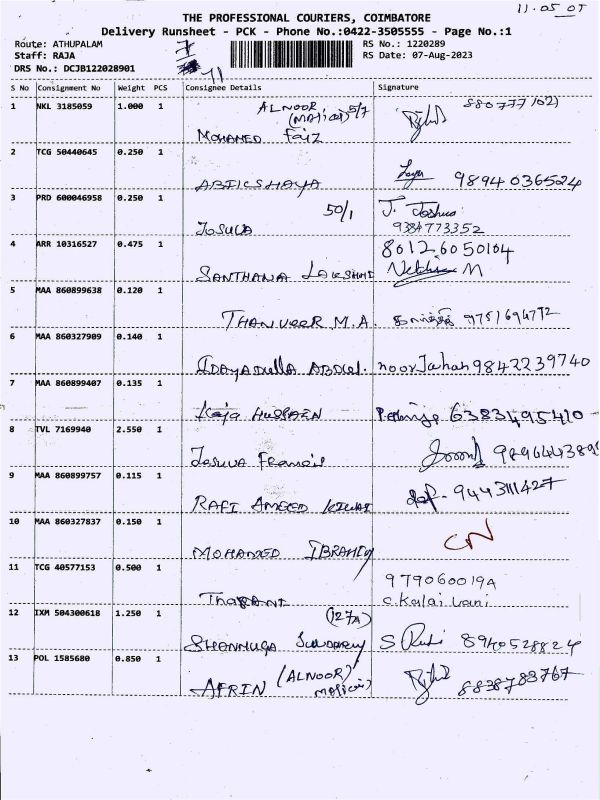 11.05
THE PROFESSIONAL COURIERS, COIMBATORE
Delivery Runsheet - PCK - Phone No.:0422-3505555 - Page No.:1
Route: ATHUPALAM RS No.: 1220289
Staff: RAJA RS Date: 07-Aug-2023
DRS No.: DCJB122028901
S No Consignment No Weight PCS Consignee Details Signature
ALNOOR
1 NKL 3185059 1.000 1 5/7
MOHAMED Faiz
2 TCG 50440645 0.250 1
ABIICSHAYA 98940 36524
3 PRD 600046958 0.250 1 50/1 J. Joshua
JOSUVA 9384773352
4 ARR 10316527 0.475 1 80126050104
SANTHANA LAKSHMI M
5 MAA 860899638 0.120 1
THANVEER M.A. 9751694772
6 MAA 860327909 0.140 1
IDAYADULLA ABDUL noor Jahan 9842239740
7 MAA 860899407 0.135 1
Kaja HUSSAIN 6383495410
8 TVL 7169940 2.550 1
JOSUVA Francis
9 MAA 860899757 0.115 1
RAFI AMEED 9443111427
10 MAA 860327837 0.150 1 CN
MOHAMED IBRAHIM
11 TCG 40577153 0.500 1 979060019A
c.Kalai vani
12 IXM 504300618 1.250 1 (127A)
SHANMUGA SUNDARY S 8940528824
13 POL 1585680 0.850 1
AFRIN (ALNOOR 8838783767